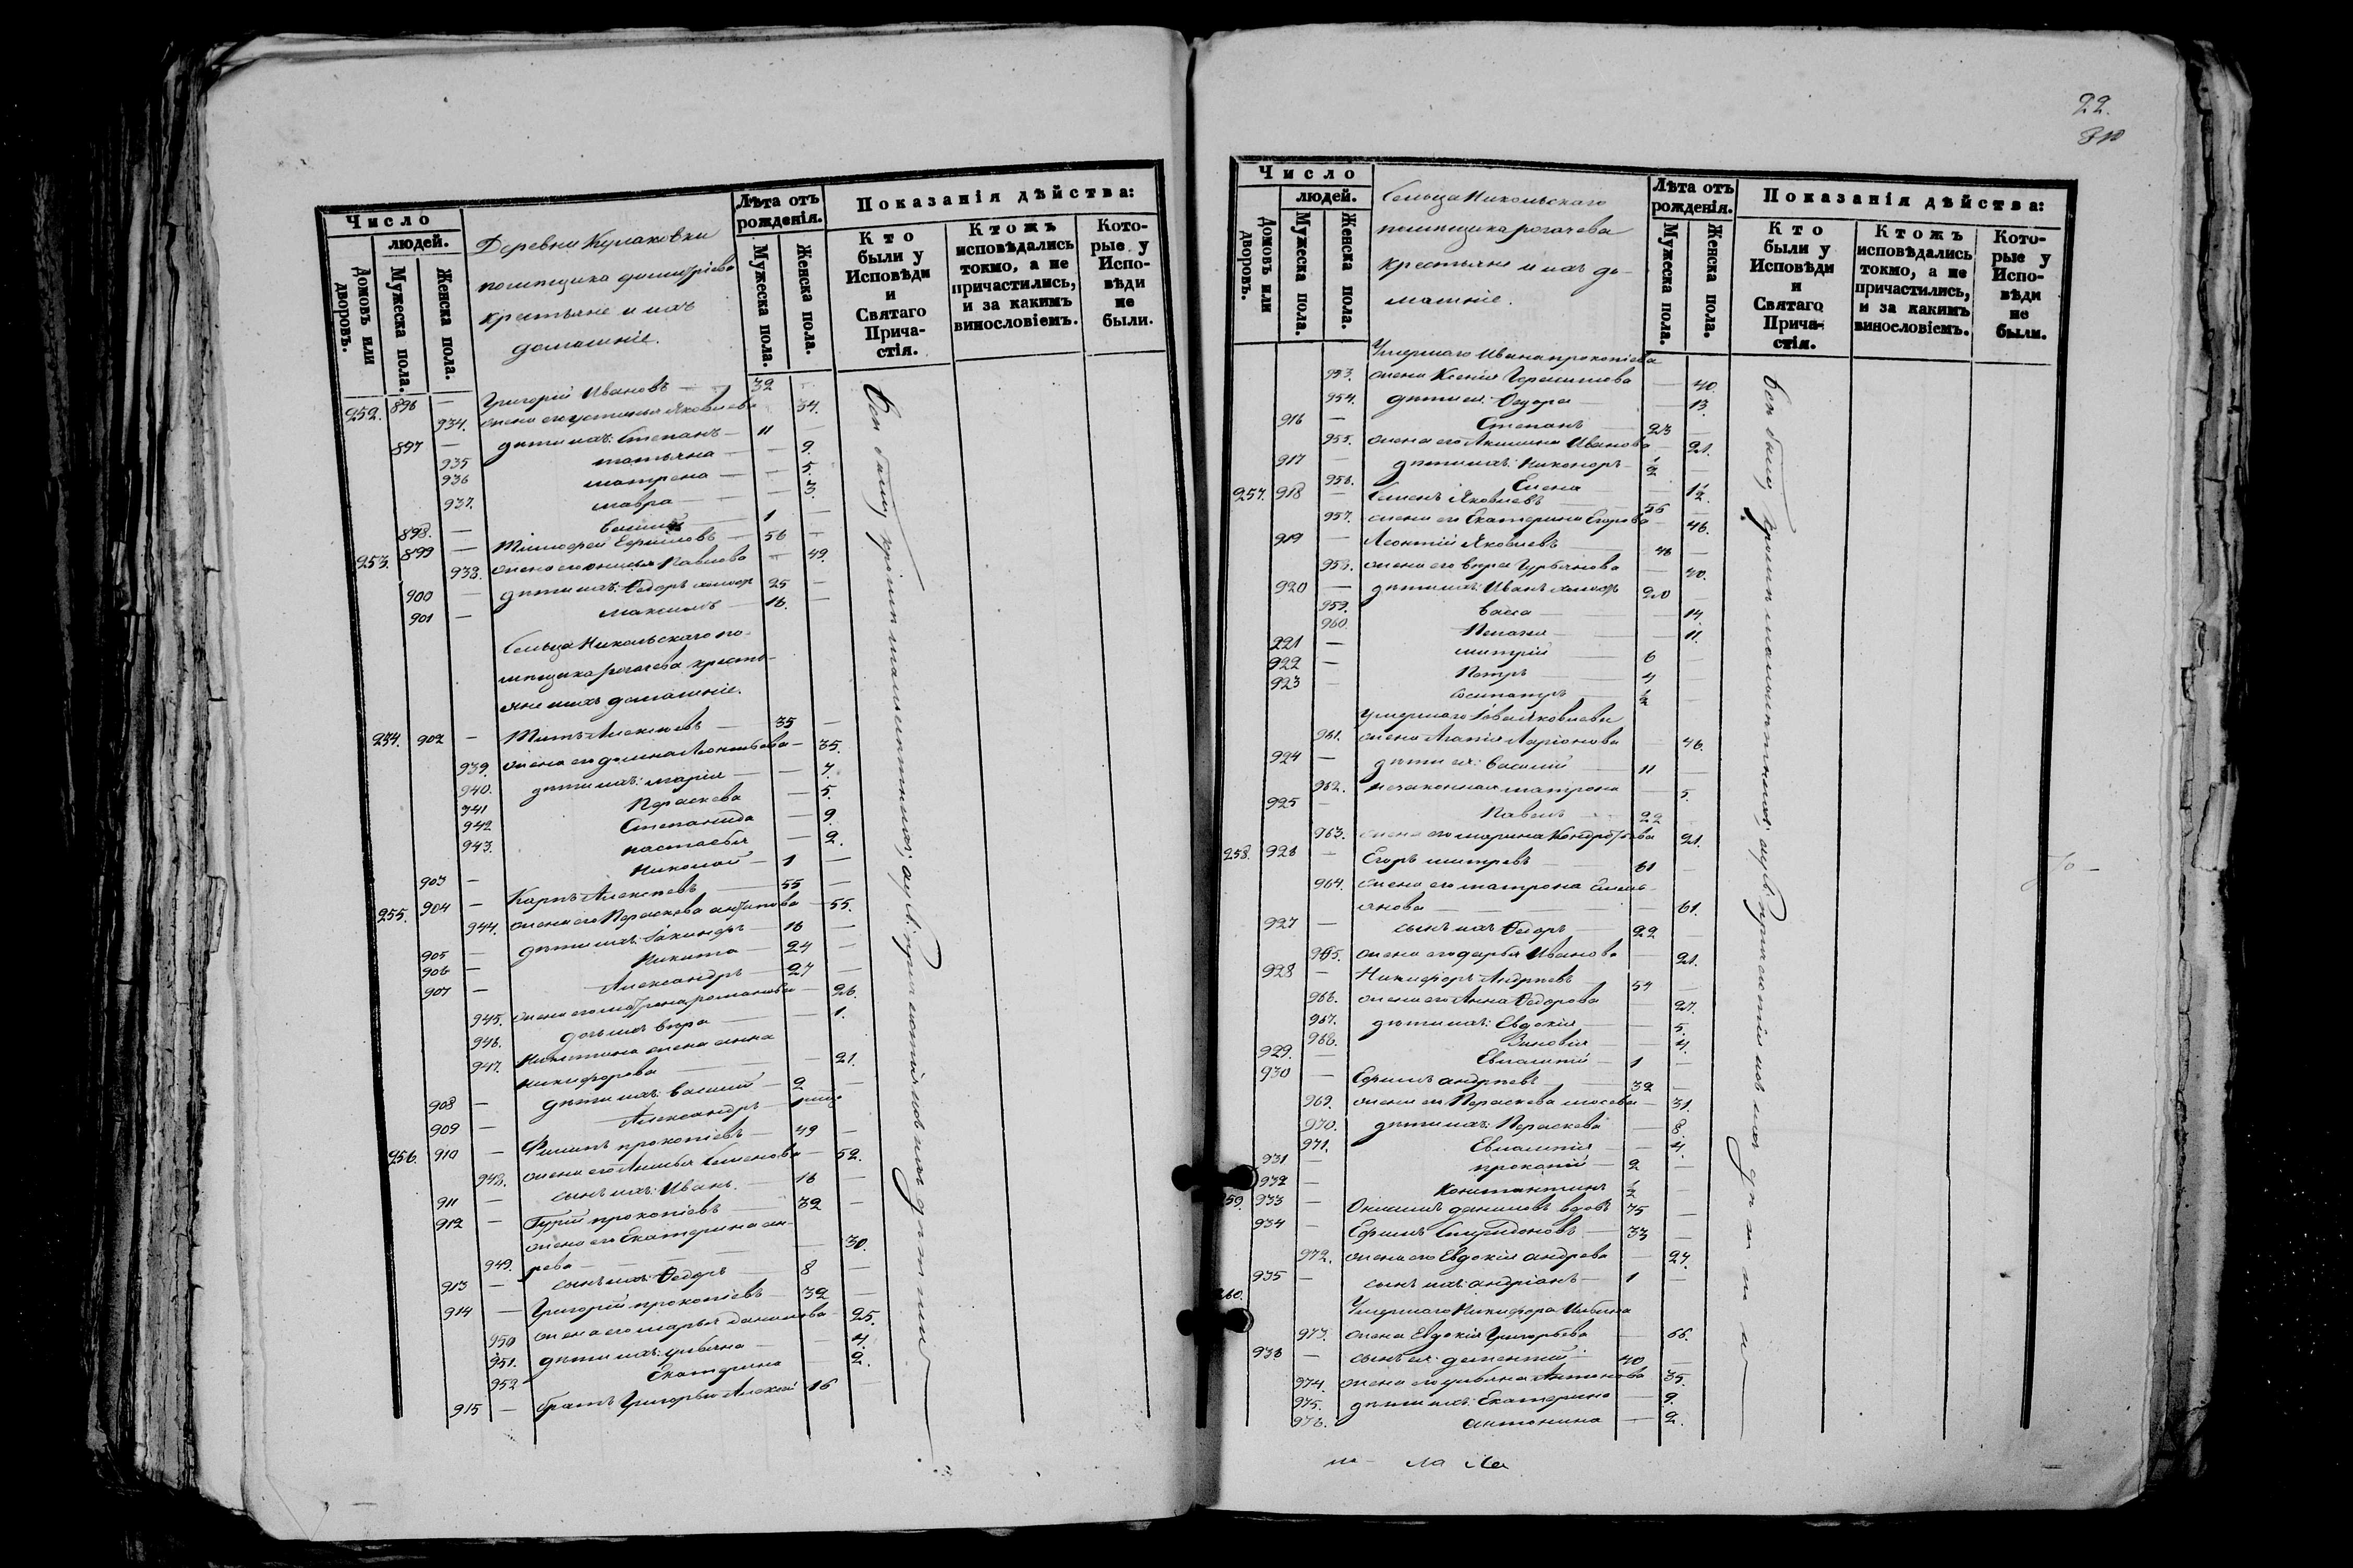 Число
людей.
Домовъ или дворовъ.
Мужеска пола.
Женска пола.
Деревни Кулаковки
помещика Димитріева
крестьяне и ихъ
домашніе.
Лѣта отъ рожденія.
Мужеска пола.
Женска пола.
Показанія дѣйства:
Кто были у Исповѣди и Святаго Причастія.
Ктожъ исповѣдались токмо, а не причастились, и за какимъ винословіемъ.
Которые у Исповѣди не были.
252. 896 — Григорій Ивановъ — 32
934. жена его Устинья Яковлева 34.
897 — дѣти ихъ: Степанъ — 11 —
935 татьяна — 9.
936 матрена — 5.
937. мавра — 3.
898. — Василій 1 —
253. 899 — Тимофей Ефимовъ — 56 —
938. жена его Павлова — 49.
900 — дѣти ихъ: Ѳедоръ холост 25 —
901 — максимъ — 16. —
Сельца Никольскаго по-
мѣщика рогачева кресть-
яне и ихъ домашніе.
254. 902 — Титъ Алексѣевъ — 35 —
939. жена его домна Леонтьева — 35.
940. дѣти ихъ: марія — 7.
941 Параскева — 5.
942 Степанида — 9.
943. настасья — 2.
903 — Николай — 1 —
255. 904 — Карпъ Алексѣевъ — 55 —
944. жена его Параскева антипова — 55.
905 — дѣти ихъ: — 16 —
906 — Никита — 24 —
907 — Александръ — 27 —
945. жена его матрена романова — 26.
946. дочь ихъ вѣра — 1.
947. Никитина жена анна
никифорова — 21.
908 — дѣти ихъ: василій — 2 —
909 — Александръ —
256. 910 — Филипъ прокопіевъ — 49 —
948. жена его Семенова — 52.
911 — сынъ ихъ: Иванъ. — 16 —
912 — Гурій прокопіевъ — 32 —
жена его Екатерина ан-
949. рева — 30.
913 — сынъ ихъ: Ѳедоръ 8 —
914 — Григорій прокопіевъ — 32 —
950 жена его марья данилова — 25.
951. дѣти ихъ: ульяна — 4.
952 Екатерина 2.
915 — братъ Григорья Алексей 16 —
Вси были кромѣ малолѣтнихъ; а у Св: Причастія и ихъ дѣти
22.
Число
людей.
Домовъ или дворовъ.
Мужеска пола.
Женска пола.
Сельца Никольскаго
помѣщика рогачева
крестьяне и ихъ до-
машніе.
Лѣта отъ рожденія.
Мужеска пола.
Женска пола.
Показанія дѣйства:
Кто были у Исповѣди и Святаго Причастія.
Ктожъ исповѣдались токмо, а не причастились, и за какимъ винословіемъ.
Которые у Исповѣди не были.
Умершаго Ивана прокопіева
953. жена Ксенія Герасимова — 40.
954. дѣти ея: Ѳедора — 13.
916 — Степанъ 23 —
955. жена его Акилина Иванова — 21.
917 — дѣти ихъ: Никоноръ — 1/2 —
956. Елена — 1 1/2.
257. 918 — Семенъ Яковлевъ 55 —
957. жена его Екатерина Егорова — 46.
919 — Леонтій Яковлевъ 46 —
958. жена его вѣра Гурьянова — 40.
920 — дѣти ихъ: Иванъ холост 20 —
959. Васса — 14.
960. Пелагея — 11.
921 — митрій 6 —
922 — Петръ 4 —
923 — Сосипатръ 1/2 —
Умершаго Яковлева
961. жена Агапія Ларіонова — 46.
924 — дѣти ея: василій 11 —
962. незаконная матрона — 5.
925 — Павелъ 22
963. жена его марина Кондратьева 21.
258. 926 — Егоръ митревъ 61 —
964. жена его матрона Емель-
янова — 61.
927 — сынъ ихъ Ѳедоръ 22 —
965. жена его дарья Иванова — 21.
928 — Никифоръ Андреевъ 54 —
966. жена его Анна Ѳедорова — 27.
967. дѣти ихъ: Евдокія — 5.
968. Зиновія — 4.
929. — Евлампій — 1 —
930 — Ефимъ андреевъ — 32 —
969. жена его Параскева мосева — 31.
970. дѣти ихъ: Параскева — 8
971. Евлампія — 4.
931 — прокопій — 2 —
932 — Константинъ 1/2 —
259. 933 — Онисимъ даниловъ вдовъ 75 —
934 — Ефимъ Спиридоновъ 33 —
972. жена его Евдокія андрева — 27.
935 — сынъ ихъ: андріанъ — 1 —
260. Умершаго Никифора
973. жена Евдокія Григорьева — 66.
936 — сынъ ея: дементій 40 —
974. жена его ульяна Антонова 35.
975. дѣти ихъ: Екатерина — 9.
976. антонина — 2.
Вси были кромѣ малолѣтнихъ; а у Св: Причастія и ихъ дѣти